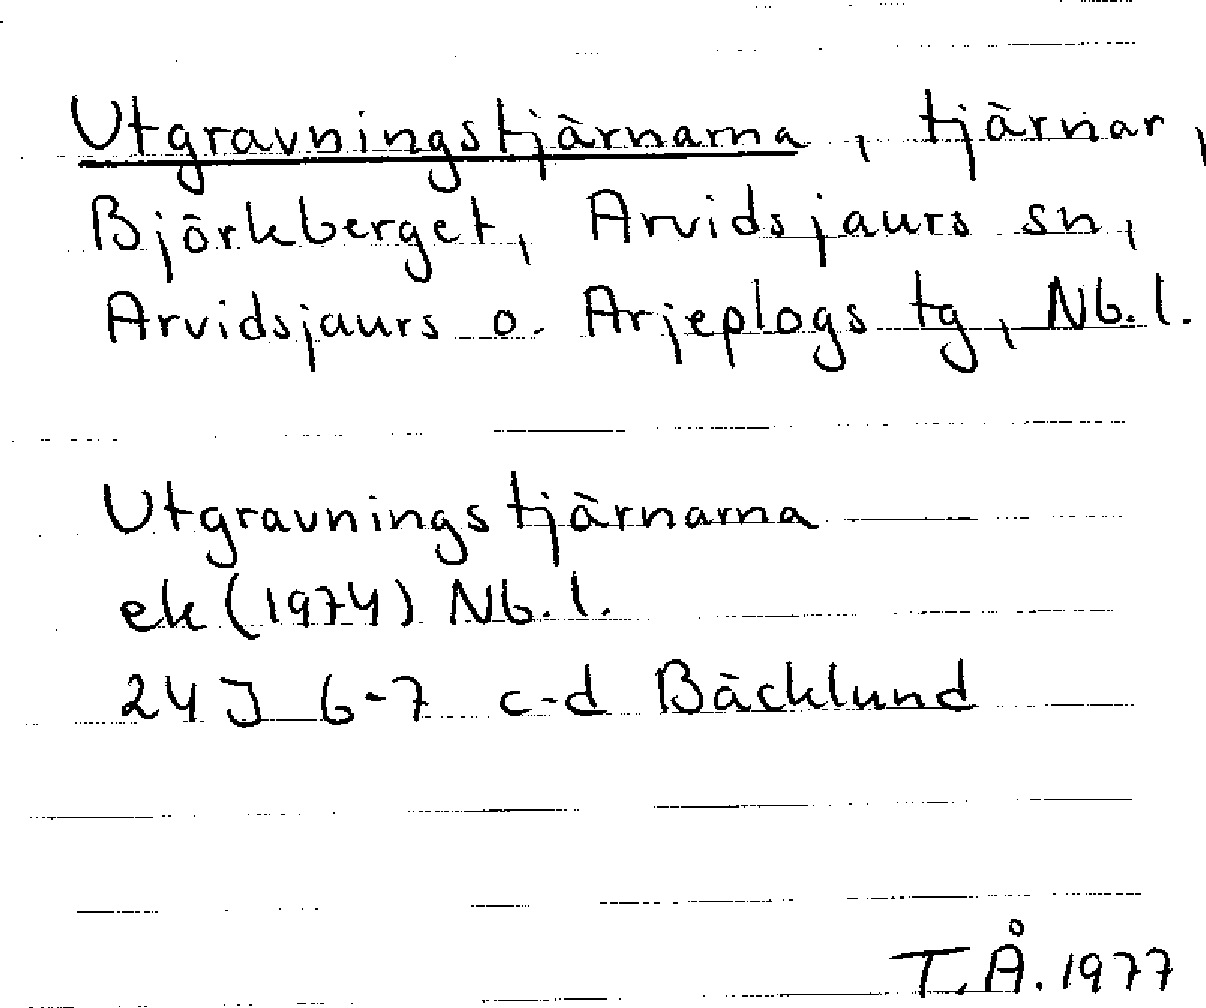 Utgravningstjärnarna, tjärnar,
Björkberget, Arvidsjaurs sn,
Arvidsjaurs o. Arjeplogs tg, Nb.l.
Utgravningstjärnarna
ek (1974) Nb.l.
24J 6-7 c-d Bäcklund
T.Å. 1977